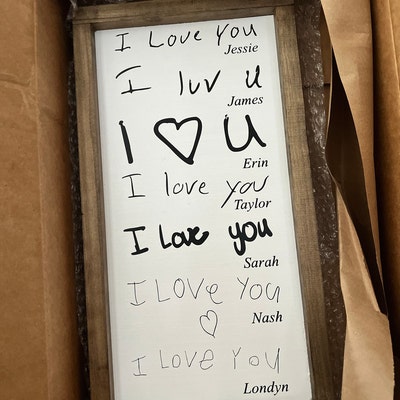 I Love You
Jessie
I luv u
James
I ♡ U
Erin
I love you
Taylor
I Love you
Sarah
I Love You
♡
Nash
I Love You
Londyn